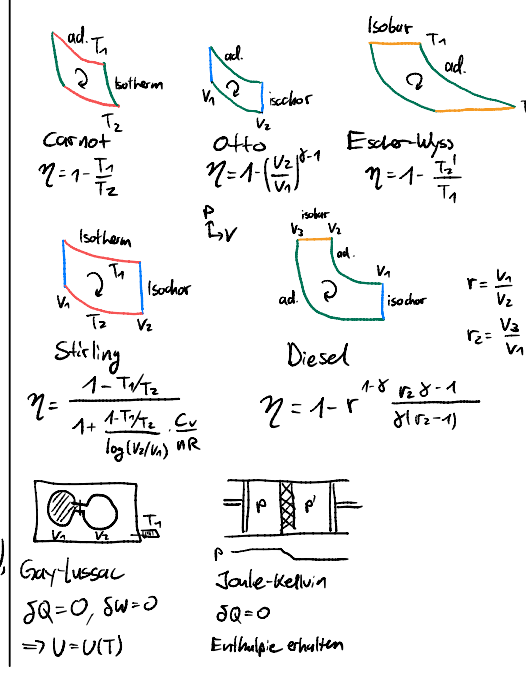 ad. T₁
Isotherm
T₂
Carnot
η = 1 - T₁/T₂
V₁
isochor
V₂
Otto
η = 1 - (V₂/V₁)^(γ-1)
Isobar T₁
ad.
T
Escher-Wyss
η = 1 - T₂'/T₁
P
V
Isotherm
T₁
Isochor
V₁ T₂ V₂
Stirling
η = (1 - T₁/T₂) / (1 + (1-T₁/T₂)/(log(V₂/V₁)) · Cv/nR)
isobar
V₃ V₂
ad.
V₁
ad.
isochor
Diesel
r = V₁/V₂
r₂ = V₃/V₁
η = 1 - r^(1-γ) (r₂γ - 1)/(γ(r₂-1))
V₁ V₂ T₁
Gay-Lussac
δQ = 0, δW = 0
⇒ U = U(T)
P P'
P
Joule-Kelluin
δQ = 0
Enthalpie erhalten